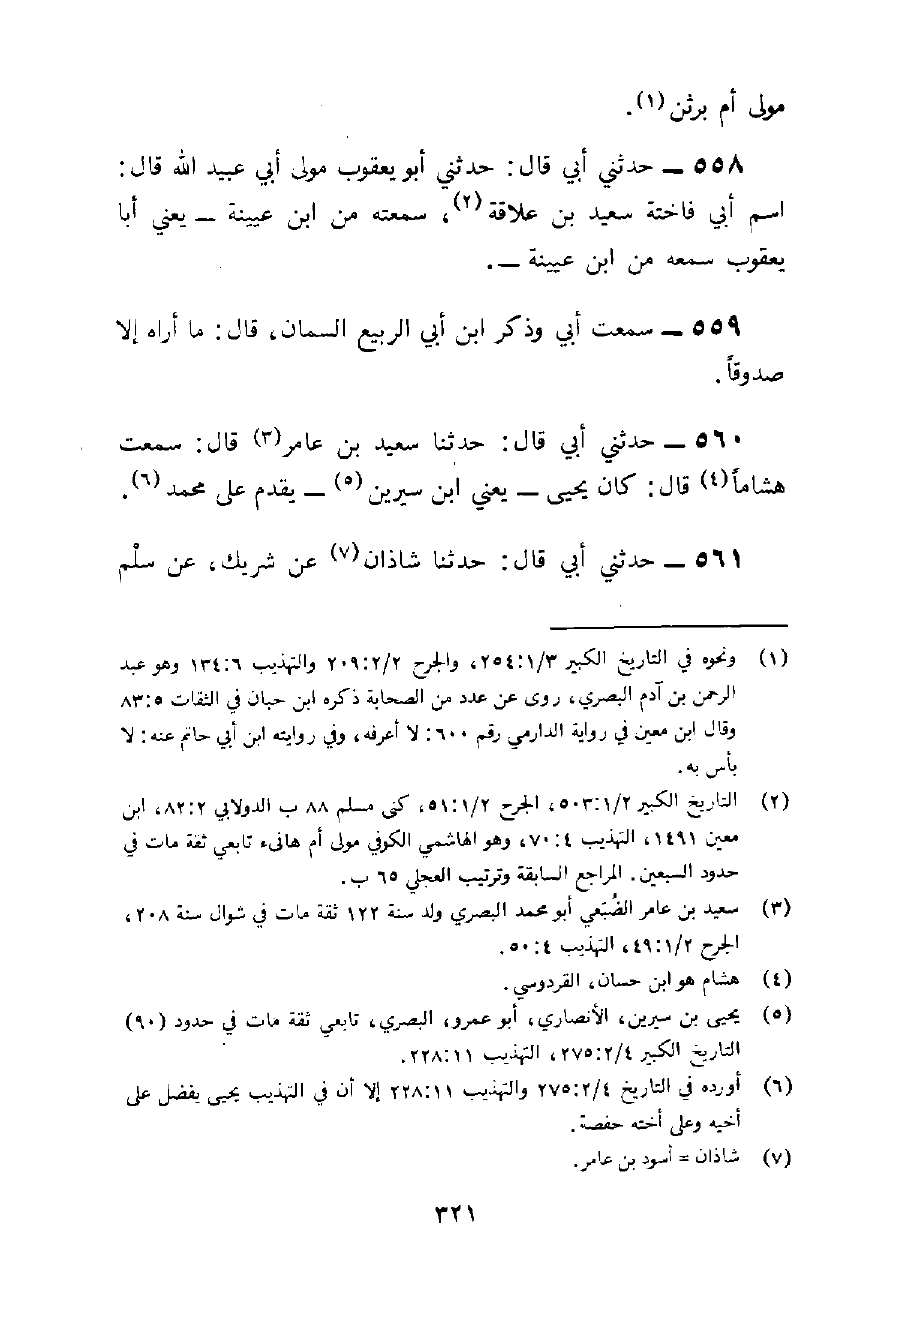 مولى أم برثن (١).
٥٥٨ ــ حدثني أبي قال: حدثني أبو يعقوب مولى أبي عبيد الله قال:
اسم أبي فاختة سعيد بن علاقة (٢)، سمعته من ابن عيينة ــ يعني أبا
يعقوب سمعه من ابن عيينة ــ.
٥٥٩ ــ سمعت أبي وذكر ابن أبي الربيع السمان، قال: ما أراه إلا
صدوقاً.
٥٦٠ ــ حدثني أبي قال: حدثنا سعيد بن عامر (٣) قال: سمعت
هشاماً (٤) قال: كان يحيى ــ يعني ابن سيرين (٥) ــ يقدم على محمد (٦).
٥٦١ ــ حدثني أبي قال: حدثنا شاذان (٧) عن شريك، عن سلْم
(١) ونحوه في التاريخ الكبير ٢٥٤:١/٣، والجرح ٢٠٩:٢/٢ والتهذيب ١٣٤:٦ وهو عبد
الرحمن بن آدم البصري، روى عن عدد من الصحابة ذكره ابن حبان في الثقات ٨٣:٥
وقال ابن معين في رواية الدارمي رقم ٦٠٠: لا أعرفه، وفي روايته ابن أبي حاتم عنه: لا
بأس به.
(٢) التاريخ الكبير ٥٠٣:١/٢، الجرح ٥١:١/٢، كنى مسلم ٨٨ ب الدولابي ٨٢:٢، ابن
معين ١٤٩١، التهذيب ٧٠:٤، وهو الهاشمي الكوفي مولى أم هانىء تابعي ثقة مات في
حدود السبعين. المراجع السابقة وترتيب العجلي ٦٥ ب.
(٣) سعيد بن عامر الضُبَعي أبو محمد البصري ولد سنة ١٢٢ ثقة مات في شوال سنة ٢٠٨،
الجرح ٤٩:١/٢، التهذيب ٥٠:٤.
(٤) هشام هو ابن حسان، القردوسي.
(٥) يحيى بن سيرين، الأنصاري، أبو عمرو، البصري، تابعي ثقة مات في حدود (٩٠)
التاريخ الكبير ٢٧٥:٢/٤، التهذيب ٢٢٨:١١.
(٦) أورده في التاريخ ٢٧٥:٢/٤ والتهذيب ٢٢٨:١١ إلا أن في التهذيب يحيى يفضل على
أخيه وعلى أخته حفصة.
(٧) شاذان = أسود بن عامر.
٣٢١